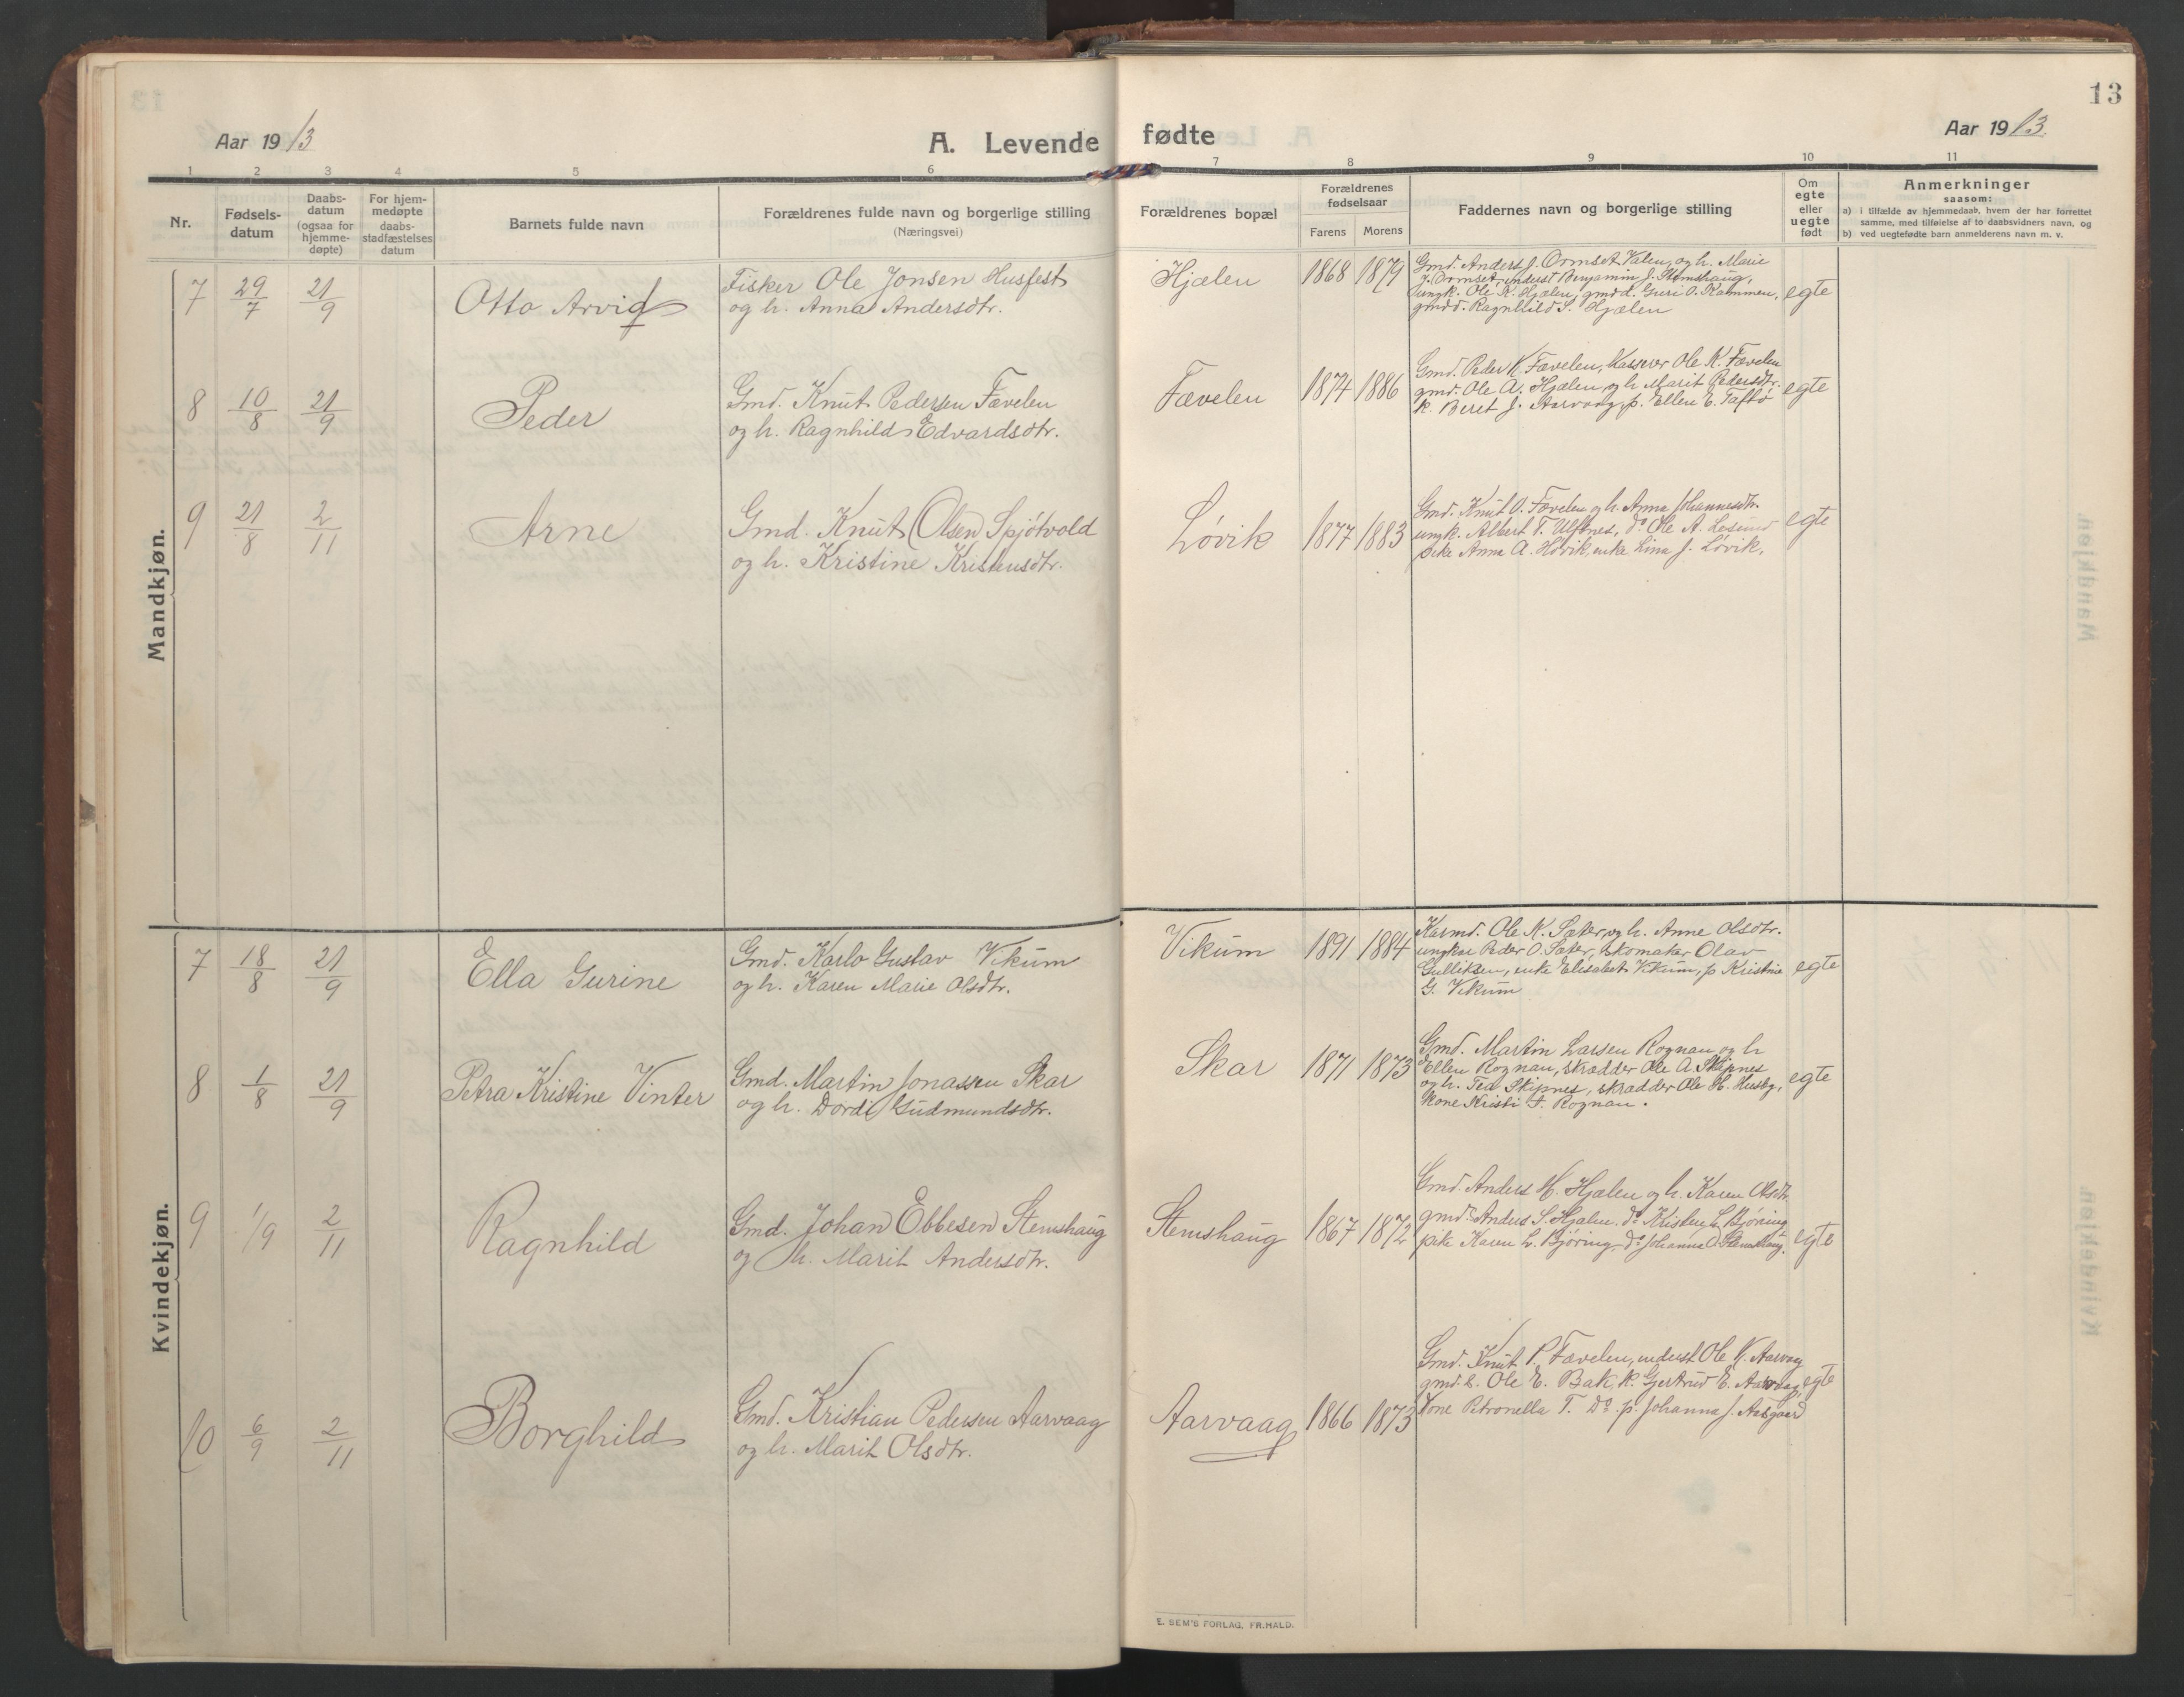 13
Aar 1913
A. Levende fødte
Aar 1913
1 2 3 4 5 6 7 8 9 10 11
Nr.
Fødsels-
datum
Daabs-
datum
(ogsaa for
hjemme-
døpte)
For hjem-
medøpte
daabs-
stadfæstelses
datum
Barnets fulde navn
Forældrenes fulde navn og borgerlige stilling
(Næringsvei)
Forældrenes bopæl
Forældrenes
fødselsaar
Farens Morens
Faddernes navn og borgerlige stilling
Om
egte
eller
uegte
født
Anmerkninger
saasom:
a) i tilfælde av hjemmedaab, hvem der har forrettet
samme, med tilføielse af to daabsvidners navn, og
b) ved uegtefødte barn anmelderens navn m. v.
Mandkjøn.
7 29/7 21/9 Otto Arvid
Fisker Ole Jonsen Husfest
og h. Anna Andersdtr.
Hjælen 1868 1879
Gmd. Anders J. Ormset Valen, og h. Marie
J. Ormset, inderst Benjamin J. Stemshaug,
ungk. Ole K. Hjælen, gmd d. Guri O. Kammen,
gmd d. Ragnhild S. Hjælen
egte
8 10/8 21/9 Peder
Gmd. Knut Pedersen Fævelen
og h. Ragnhild Edvardsdtr.
Fævelen 1874 1886
Gmd. Peder K. Fævelen, Kasserer Ole K. Fævelen
gmd. Ole A. Hjælen og h. Marit Pedersdtr.
k. Beret J. Aarvaag, p. Ellen E. Taftø
egte
9 21/8 2/11 Arne
Gmd. Knut Olsen Spjøtvold
og h. Kristine Kristensdtr.
Løvik 1877 1883
Gmd. Knut O. Fævelen og h. Anna Johannesdtr.
ungk. Albert T. Ulfsnes, do Ole A. Lesund
pike Anna A. Hövik, enke Lina J. Løvik.
egte
Kvindekjøn.
7 18/8 21/9 Ella Gurine
Gmd. Karlo Gustav Vikum
og h. Karen Marie Olsdtr.
Vikum 1891 1884
Kaarmd. Ole K. Sæter og h. Anne Olsdtr.
ungkar Peder O. Sæter, skomaker Olav
Gulliksen, enke Elisabet Vikum, p. Kristine
G. Vikum
egte
8 1/8 21/9 Petra Kristine Vinter
Gmd. Martin Jonassen Skar
og h. Dordi Gudmundsdtr.
Skar 1871 1873
Gmd. Martin Larsen Rognan og h
Ellen Rognan, skrædder Ole A. Skipnes
og h. Tea Skipnes, skrædder Ole H. Husby,
kone Kristi F. Rognan.
egte
9 1/9 2/11 Ragnhild
Gmd. Johan Ebbesen Stemshaug
og h. Marit Andersdtr.
Stemshaug 1867 1872
Gmd. Anders H. Hjælen og h. Karen Olsdtr.
gmds Anders S. Hjælen. do Kristen L. Bjøring
pike Karen L. Bjøring, do Johanna O. Stemshaug.
egte
10 6/9 2/11 Borghild
Gmd. Kristian Pedersen Aarvaag
og h. Marit Olsdtr.
Aarvaag 1866 1873
Gmd. Knut P. Fævelen, inderst Ole K. Aarvaag
gmd. s. Ole E. Bak, k. Gjertrud E. Aarvaag,
Kone Petronella T. Do. p. Johanna J. Aasgaard
egte
E. SEM'S FORLAG, FR.HALD.